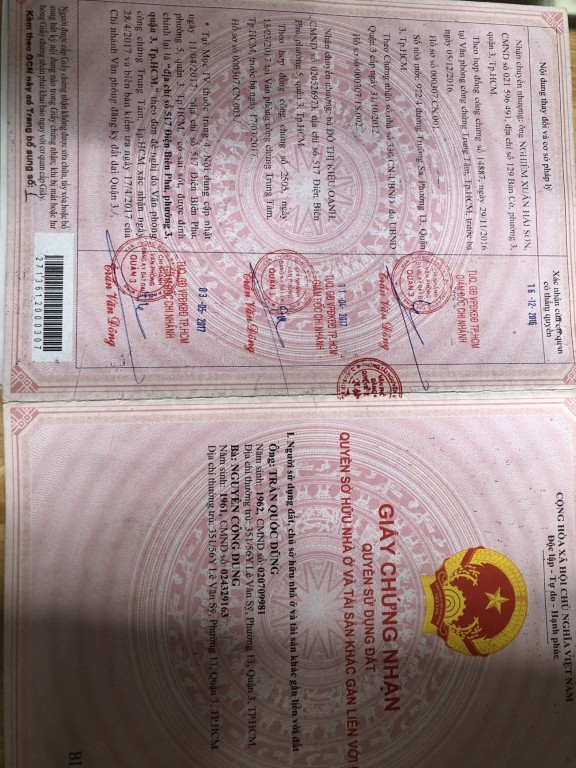 Nội dung thay đổi và cơ sở pháp lý
Xác nhận của cơ quan
có thẩm quyền
Nhận chuyển nhượng: ông NGHIÊM XUÂN HẢI SƠN,
CMND số 021 596 491, địa chỉ số 129 Bàn Cờ, phường 3,
quận 3, Tp.HCM.
Theo hợp đồng công chứng số 14887, ngày 29/11/2016
tại Văn phòng công chứng Trung Tâm, Tp.HCM, trước bạ
ngày 05/12/2016.
Hồ sơ số 000307.CN.001.
Theo Chứng nhận số nhà số: 336/CN-UBND do UBND
Quận 3 cấp ngày 31/10/2012.
Số nhà mới: 972/4 đường Trường Sa, Phường 13, Quận
3, Tp.HCM.
Hồ sơ: 000307.TS.002.
15 -12- 2016
TUQ. GĐ VPĐKĐĐ TP.HCM
GIÁM ĐỐC CHI NHÁNH
QUẬN 3
Trần Văn Đông
Nhận chuyển nhượng bà ĐỖ THỊ KIỀU OANH,
CMND số 020526978, địa chỉ số 517 Điện Biên
Phủ, phường 5, quận 3, Tp.HCM.
Theo hợp đồng công chứng số 2505, ngày
13/03/2017 tại Văn phòng công chứng Trung Tâm,
Tp.HCM, trước bạ ngày 17/03/2017.
Hồ sơ: 000307.CN.003.
TUQ. GĐ VPĐKĐĐ TP.HCM
GIÁM ĐỐC CHI NHÁNH
QUẬN 3
Trần Văn Đông
* Tại Mục IV thuộc trang 4: Nội dung cập nhật
ngày 11/04/2017: "địa chỉ số 517 Điện Biên Phủ,
phường 5, quận 3, Tp.HCM" có sai sót, được đính
chính lại là "địa chỉ số 517 Điện Biên Phủ, phường 3,
quận 3, Tp.HCM" theo đơn đề nghị do Văn phòng
công chứng Trung Tâm, Tp.HCM xác nhận ngày
28/4/2017 và biên bản kiểm tra ngày 17/4/2017 của
Chi nhánh Văn phòng đăng ký đất đai Quận 3./.
TUQ. GĐ VPĐKĐĐ TP.HCM
GIÁM ĐỐC CHI NHÁNH
03 -05- 2017
QUẬN 3
Trần Văn Đông
Người được cấp Giấy chứng nhận không được sửa chữa, tẩy xóa hoặc bổ
sung bất kỳ nội dung nào trong Giấy chứng nhận; khi bị mất hoặc hư
hỏng Giấy chứng nhận phải khai báo ngay với cơ quan cấp Giấy.
Kèm theo GCN này có Trang bổ sung số: 1
2713612000307
CỘNG HÒA XÃ HỘI CHỦ NGHĨA VIỆT NAM
Độc lập - Tự do - Hạnh phúc
GIẤY CHỨNG NHẬN
QUYỀN SỬ DỤNG ĐẤT
QUYỀN SỞ HỮU NHÀ Ở VÀ TÀI SẢN KHÁC GẮN LIỀN VỚI
I. Người sử dụng đất, chủ sở hữu nhà ở và tài sản khác gắn liền với đất
Ông: TRẦN QUỐC DŨNG
Năm sinh: 1962, CMND số: 020709981
Địa chỉ thường trú: 351/56Y Lê Văn Sỹ, Phường 13, Quận 3, TP.HCM.
Bà: NGUYỄN CÔNG DUNG
Năm sinh: 1961, CMND số: 024329163
Địa chỉ thường trú: 351/56Y Lê Văn Sỹ, Phường 13, Quận 3, TP.HCM.
BI